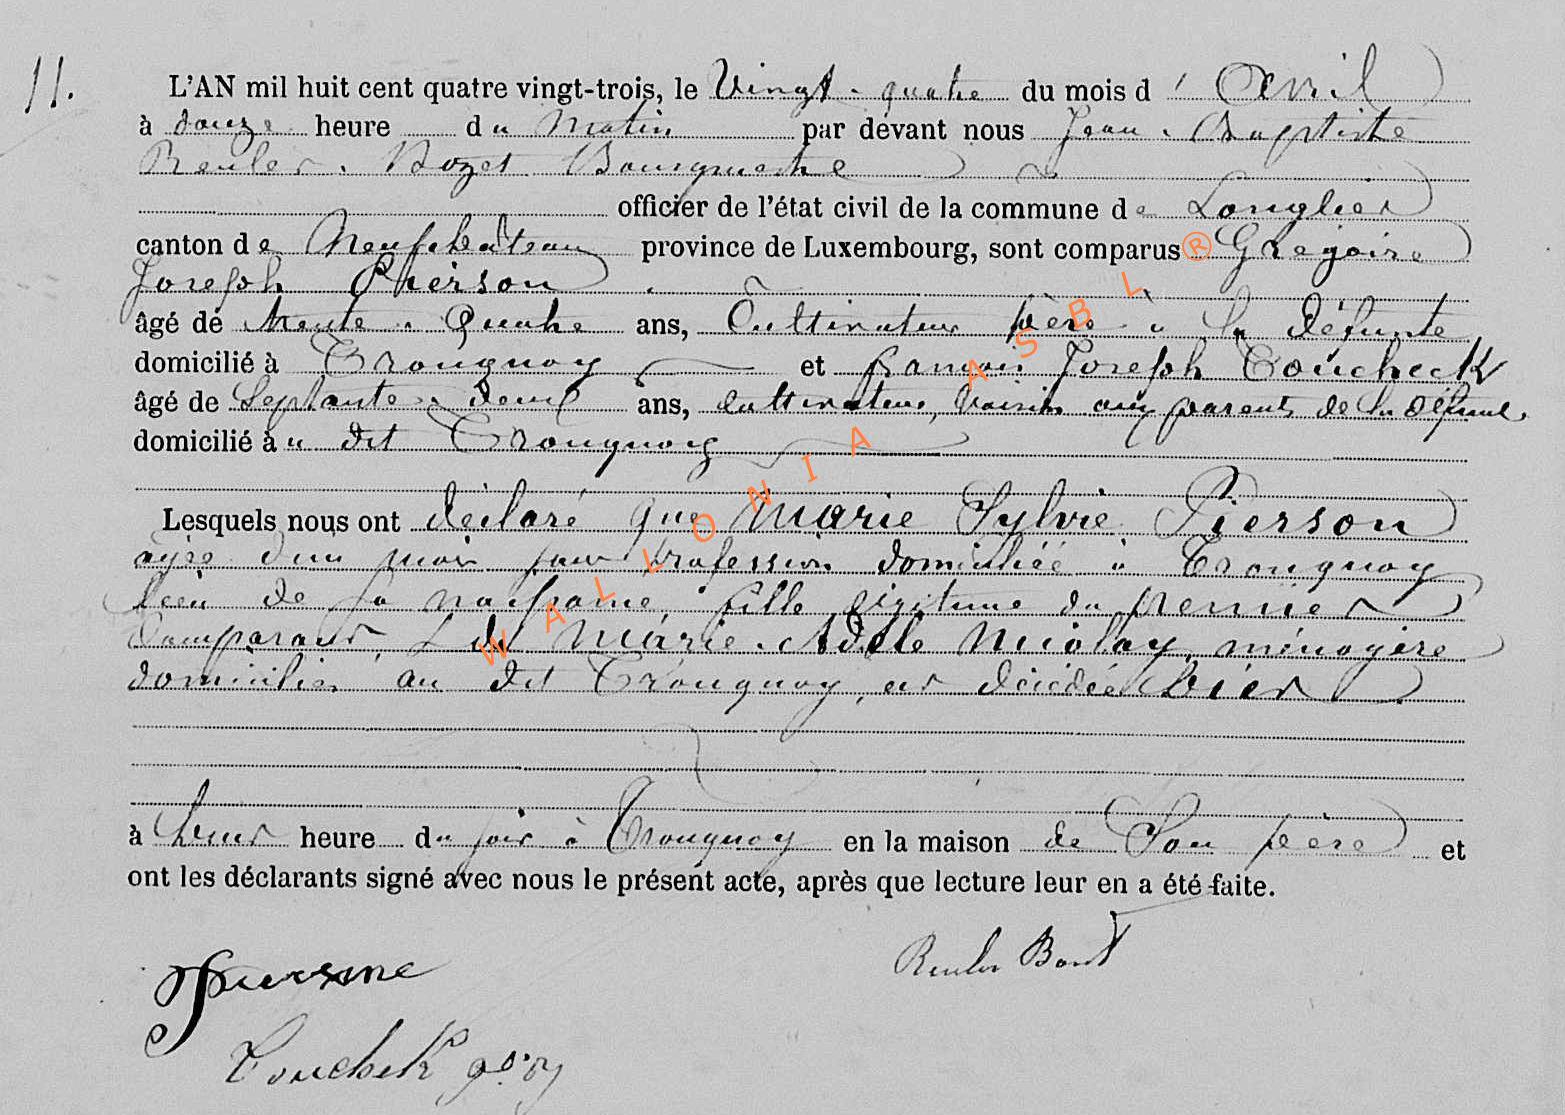 11.
L'AN mil huit cent quatre vingt-trois, le Vingt-quatre du mois d' Avril
à douze heure du Matin par devant nous Jean-Baptiste
Reuler-Rozet Bourgmestre
officier de l'état civil de la commune de Longlier
canton de Neufchâteau province de Luxembourg, sont comparus ® Grégoire
Joseph Pierson
âgé de trente-Quatre ans, Cultivateur père à la défunte
domicilié à Tronquoy et françois Joseph Toucheck
âgé de Septante-deux ans, cultivateur, voisin aux parents de la défunte.
domicilié à u dit Tronquoy
Lesquels nous ont déclaré que Marie Sylvie Pierson
agée d'un mois sans profession domiciliée à Tronquoy
lieu de sa naissance, fille légitime du premier
Comparant, & de Marie-Adèle Nicolay, ménagère
domiciliés au dit Tronquoy, est décédée hier
à heure du soir à Tronquoy en la maison de Son père et
ont les déclarants signé avec nous le présent acte, après que lecture leur en a été faite.
Reuler
Toucheck
WALLONIA ASBL